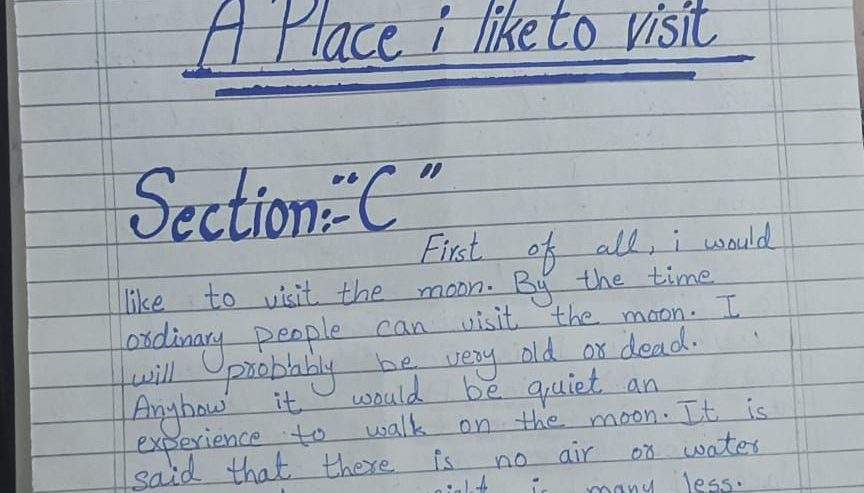 A Place i like to visit
Section:- "C"
First of all, i would
like to visit the moon. By the time
ordinary people can visit the moon. I
will probably be very old or dead.
Anyhow it would be quiet an
experience to walk on the moon. It is
said that there is no air or water
is many less.